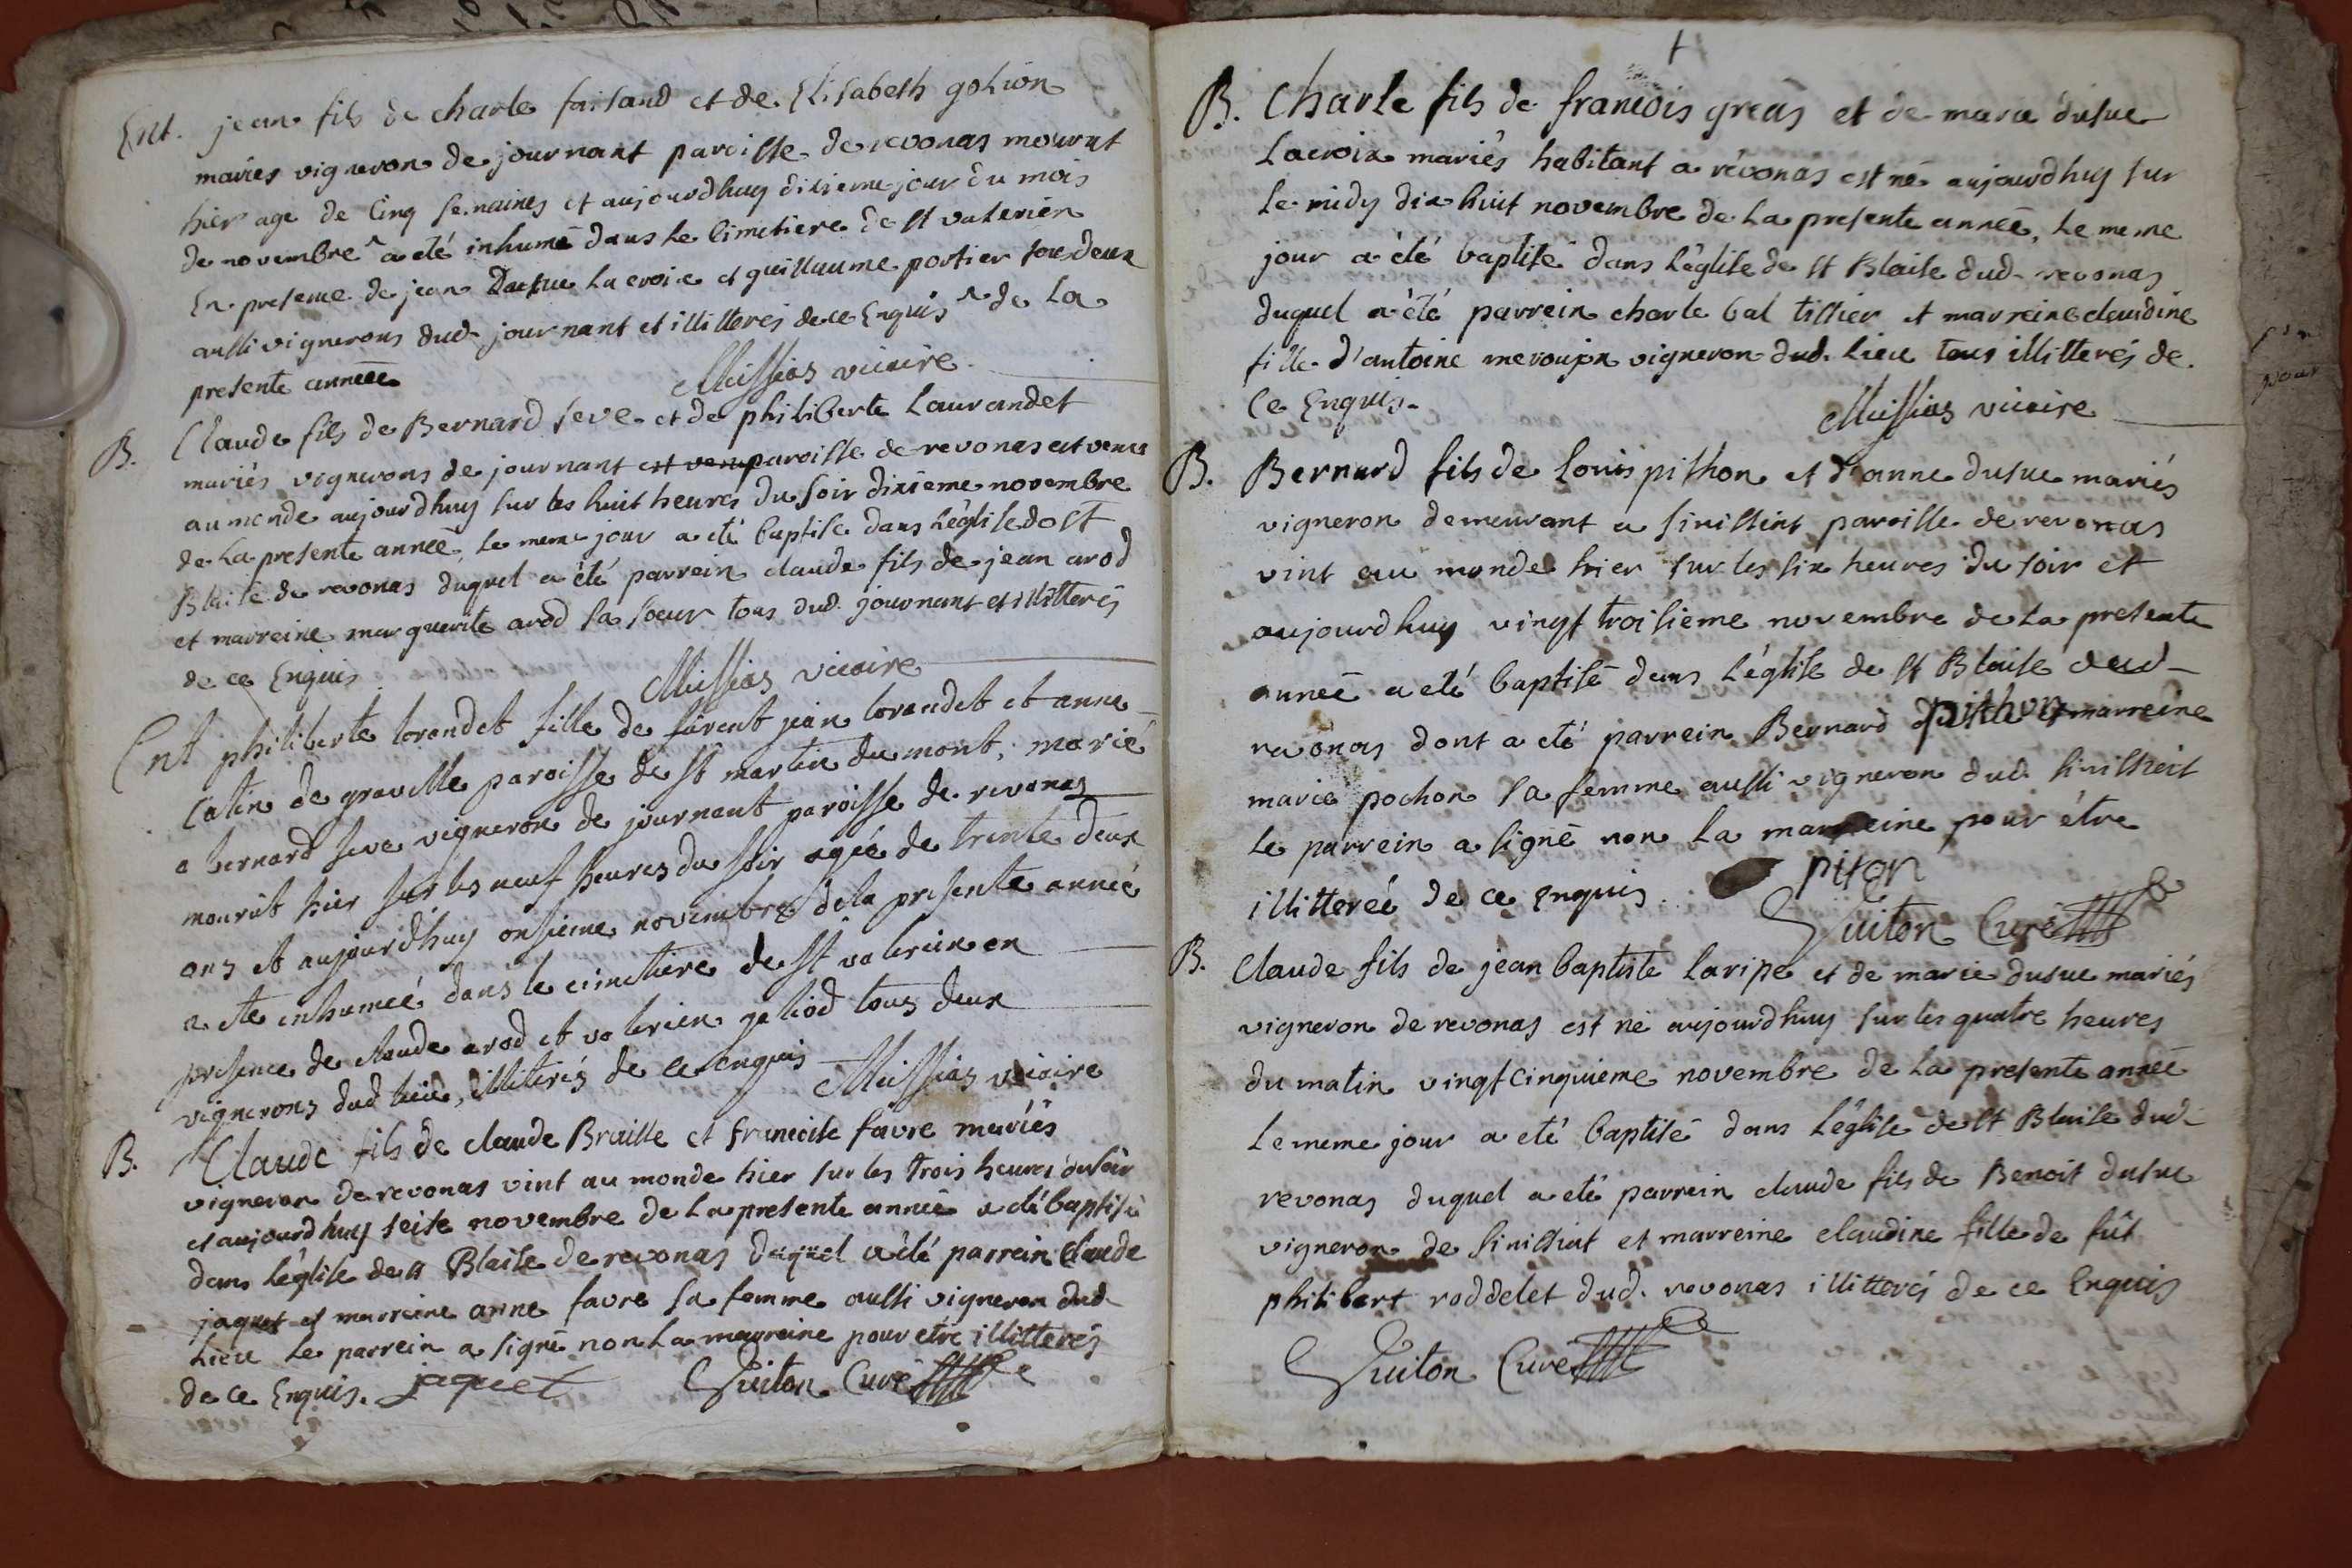 Ent. jean fils de charle faisand et de Elisabeth golion
mariés vigneron de journant paroisse de revonas mourut
hier agé de cinq semaines et aujourdhuy disieme jour du mois
de novembre ^ a été inhumé dans le cimetiere de st valerien
En presence de jean Dusuc lacroix et guillaume portier tous deux
aussi vignerons dud. journant et illitterés de ce Enquis ^ de la
presente année
Meissias vicaire
B. Claude fils de Bernard seve et de philiberte Laurandet
mariés vignerons de journant est venu paroisse de revonas est venu
au monde aujourdhuy sur les huit heures du soir dixieme novembre
de la presente année, le meme jour a été baptisé dans l'église de st
Blaise de revonas duquel a été parrein claude fils de jean arod
et marreine marguerite arod sa soeur tous dud. journant et illitterés
de ce Enquis
Meissias vicaire
Ent philiberte lorandet fille de jean lorandet et anne
catin de gravelle paroisse de st martin du mont, marié
a bernard seve vigneron de journant paroisse de revonas
mourût hier sur les neuf heures du soir agée de trente deux
ans et aujourdhuy onsieme novembre de la presente année
a ete inhumée dans le cimetiere de st valerien en
presence de claude arod et valerien goliod tous deux
vignerons dud lieu, illiterés de ce enquis
Meissias vicaire
B. Claude fils de claude Braille et francoise favre mariés
vigneron de revonas vint au monde hier sur les trois heures du soir
et aujourdhuy seise novembre de la presente année a été baptisé
dans l'église de st Blaise de revonas duquel a été parrein claude
jaquet et marreine anne favre sa femme aussi vigneron dud.
lieu le parrein a signé non la marreine pour etre illitterés
de ce Enquis. jaquet Guiton Curé
B. Charle fils de francois greas et de marie dusuc
Lacroix mariés habitant a révonas est né aujourdhuy sur
le midy dix huit novembre de la presente année, le meme
jour a été baptisé dans l'église de st Blaise dud. revonas
duquel a été parrein charle bal tissier et marreine claudine
fille d'antoine vigneron dud. lieu tous illitterés de
ce Enquis.
Meissias vicaire
B. Bernard fils de louis pithon et d'anne dusuc mariés
vigneron demeurant a sinissiat paroisse de revonas
vint au monde hier sur les six heures du soir et
aujourdhuy vingt troisieme novembre de la presente
année a eté baptisé dans l'église de st Blaise dud.
revonas dont a eté parrein Bernard pithon et marreine
marie pochon sa femme aussi vigneron dud. sinissiat
le parrein a signé non la marreine pour être
illitterée de ce enquis. piton
Guiton Curé
B. Claude fils de jean baptiste laripe et de marie dusuc mariés
vigneron de revonas est né aujourdhuy sur les quatre heures
du matin vingt cinquieme novembre de la presente année
le meme jour a eté baptisé dans l'église de st Blaise dud.
revonas duquel a eté parrein claude fils de Benoit dusuc
vigneron de sinissiat et marreine claudine fille de fût
philibert roddelet dud. revonas illitterés de ce Enquis
Guiton Curé